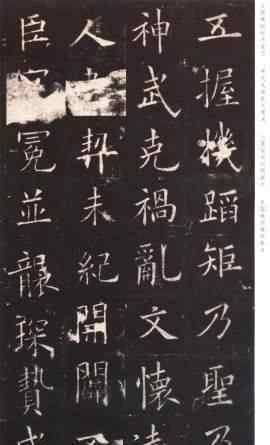 五握機蹈矩乃聖
神武克禍亂文懷
人契未紀開闢
臣冕並襲琛贄